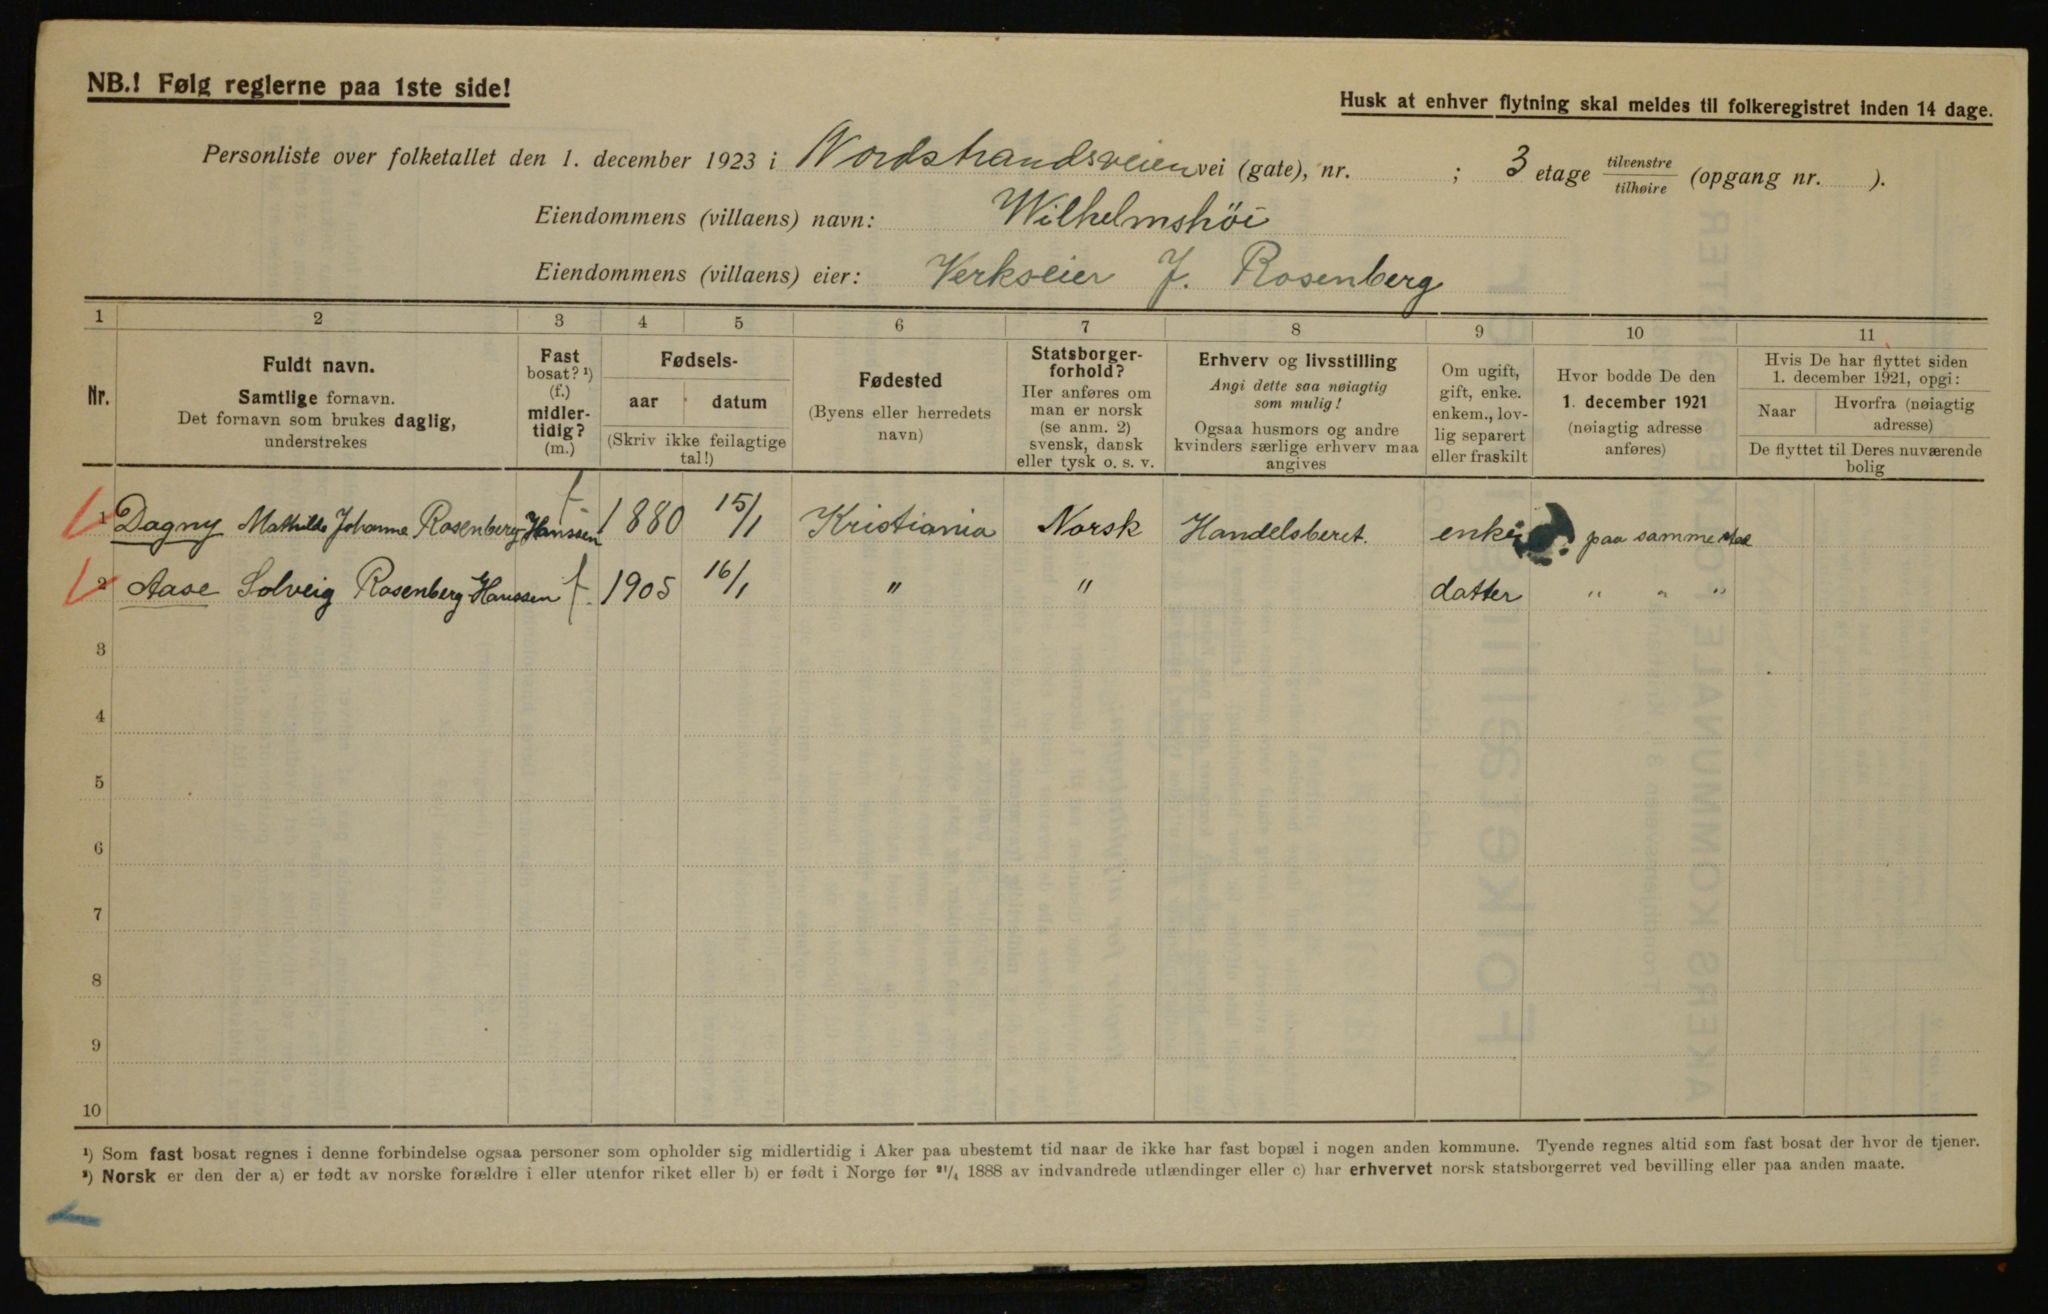 NB.! Følg reglerne paa 1ste side!
Husk at enhver flytning skal meldes til folkeregistret inden 14 dage.
Personliste over folketallet den 1. december 1923 i Nordstrandsveien vei (gate), nr. ; 3 etage tilvenstre/tilhøire (opgang nr. ).
Eiendommens (villaens) navn: Wilhelmshöi
Eiendommens (villaens) eier: Verkseier J. Rosenberg
1 2 3 4 5 6 7 8 9 10 11
Nr.
Fuldt navn.
Samtlige fornavn.
Det fornavn som brukes daglig,
understrekes
Fast
bosat? ¹)
(f.)
midler-
tidig?
(m.)
Fødsels-
aar datum
(Skriv ikke feilagtige
tal!)
Fødested
(Byens eller herredets
navn)
Statsborger-
forhold?
Her anføres om
man er norsk
(se anm. 2)
svensk, dansk
eller tysk o. s. v.
Erhverv og livsstilling
Angi dette saa nøiagtig
som mulig!
Ogsaa husmors og andre
kvinders særlige erhverv maa
angives
Om ugift,
gift, enke.
enkem., lov-
lig separert
eller fraskilt
Hvor bodde De den
1. december 1921
(nøiagtig adresse
anføres)
Hvis De har flyttet siden
1. december 1921, opgi:
Naar
Hvorfra (nøiagtig
adresse)
De flyttet til Deres nuværende
bolig
1 Dagny Mathilde Johanne Rosenberg-Hanssen f 1880 15/1 Kristiania Norsk Handelsberet. enke paa samme sted
2 Aase Solveig Rosenberg-Hanssen f. 1905 16/1 " " datter " " "
3
4
5
6
7
8
9
10
¹) Som fast bosat regnes i denne forbindelse ogsaa personer som opholder sig midlertidig i Aker paa ubestemt tid naar de ikke har fast bopæl i nogen anden kommune. Tyende regnes altid som fast bosat der hvor de tjener.
²) Norsk er den der a) er født av norske forældre i eller utenfor riket eller b) er født i Norge før ²¹/₄ 1888 av indvandrede utlændinger eller c) har erhvervet norsk statsborgerret ved bevilling eller paa anden maate.